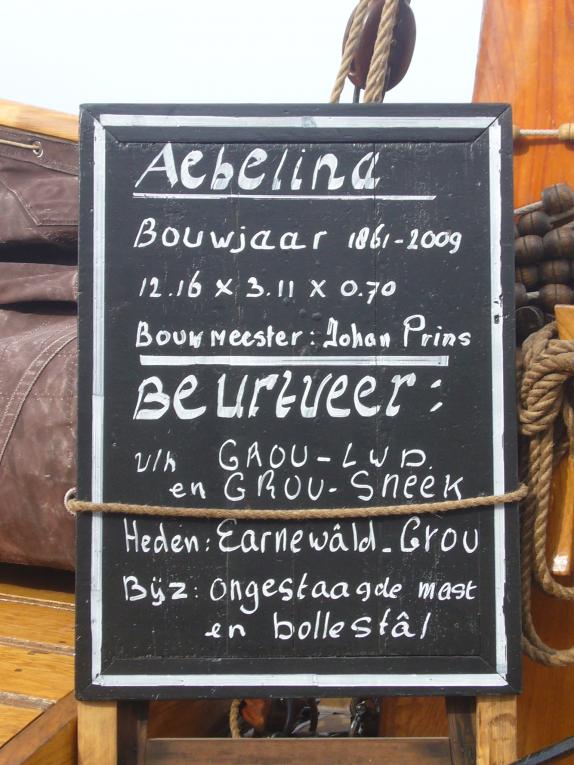 Aebelina
Bouwjaar 1861-2009
12.16 x 3.11 x 0.70
Bouwmeester: Johan Prins
Beurtveer:
v/h GROU-LWD.
en GROU-Sneek
Heden: Earnewâld-Grou
Bijz: ongestaagde mast
en bollestâl